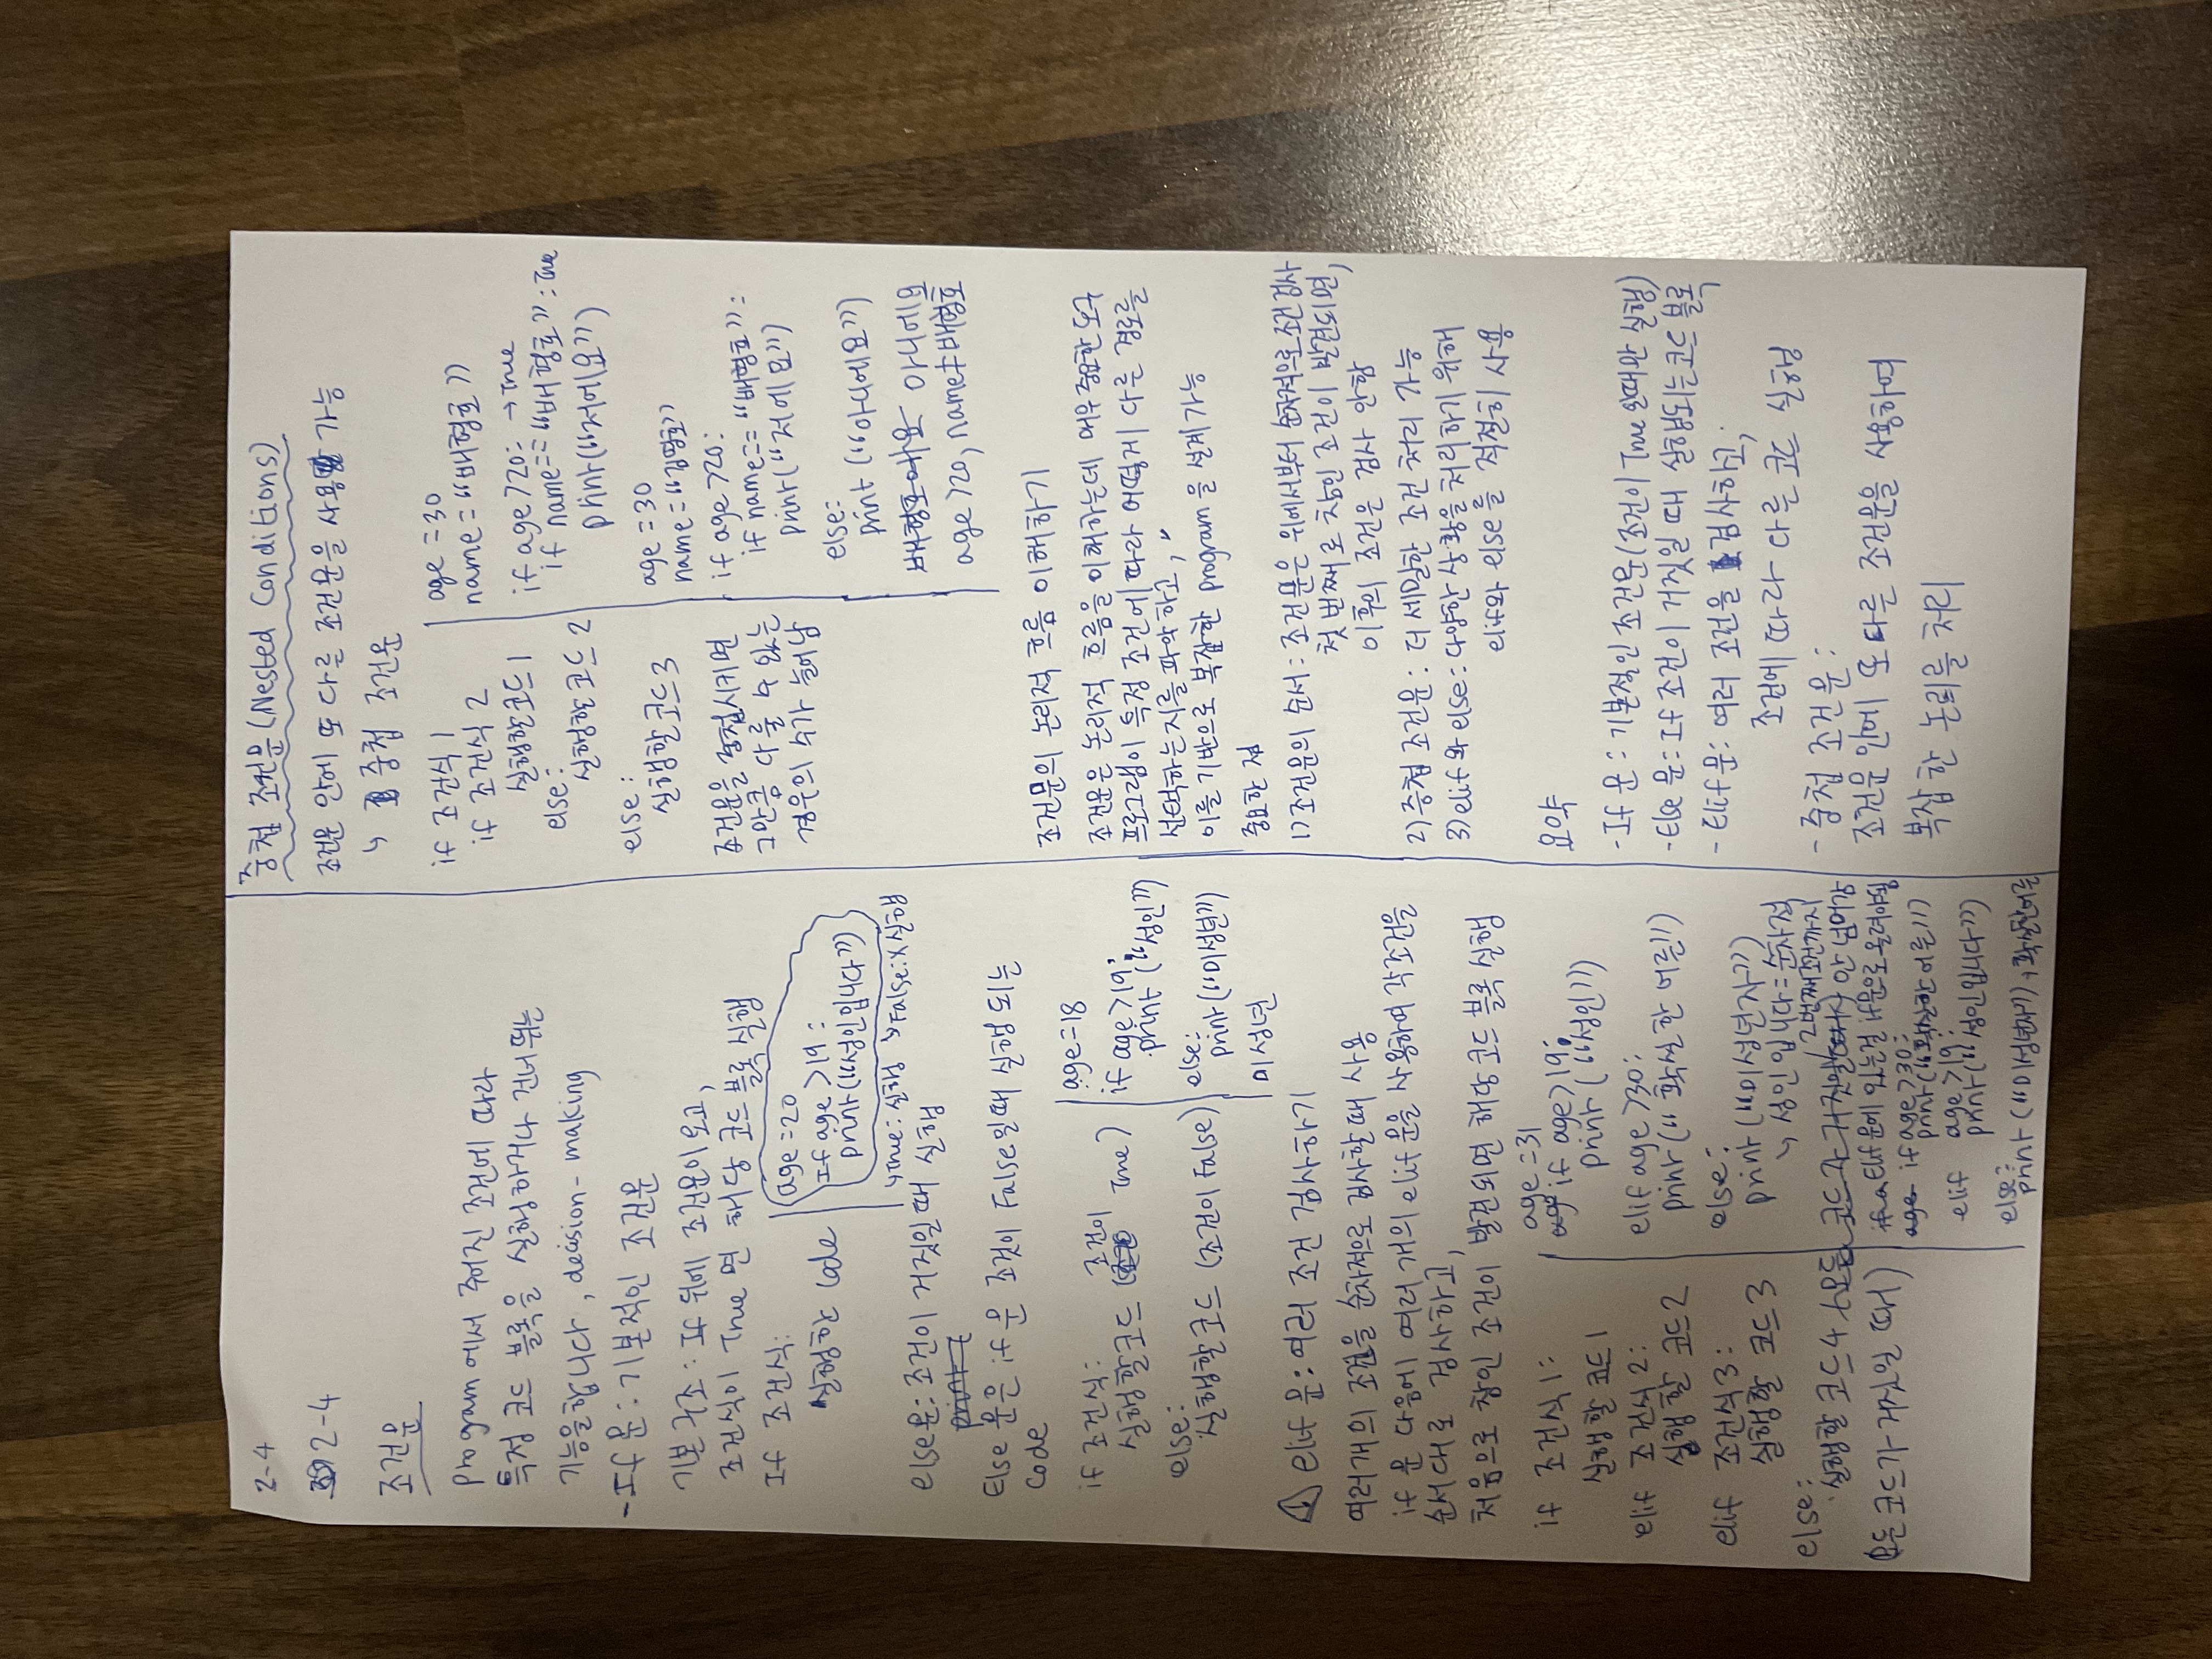 2-4
2-4
조건문
program에서 주어진 조건에 따라
특정 코드 블록을 실행하거나 건너뛰는
기능을합니다, decision-making
- If 문 : 기본적인 조건문
기본구조 : If 뒤에 조건문이 오고,
조건식이 True 면 해당 코드블록 실행
If 조건식:
실행할 code
age=20
If age>19 :
print("성인입니다")
↳True: 실행 ↳False:X실행
else문: 조건이 거짓일 때 실행
Else 문은 if 문 조건이 False일때 실행 되는
code
if 조건식:
실행할코드 (조건이 True)
else:
실행할코드 (조건이 False)
age=18
if age>19:
print("성인")
else:
print("미성년")
미성년
elif 문 : 여러 조건 검사하기
여러개의 조건을 순차적으로 검사할때 사용
if 문 다음에 여러 개의 elif문을 사용하여 각조건을
순서대로 검사하고,
처음으로 참인 조건이 발견되면 해당 코드 블록 실행
if 조건식 1:
실행할 코드 1
elif 조건식 2:
실행할 코드2
elif 조건식3:
실행할 코드3
else:
실행할 코드4
(모든코드가 거짓일 때)
age=31
if age>19:
print("성인")
elif age>30:
print("확실한 어른")
else:
print("미성년자")
↳ 성인입니다=순차적
2번째조건까지
안 넘어감
elif문에 있는걸 if문으로 올려야됨
if age>30:
print("확실한어른")
elif age>19:
print("성인입니다")
else:
print("미성년자"), 확실한어른
중첩 조건문 (Nested Conditions)
조건문 안에 또 다른 조건문을 사용 가능
↳ 중첩 조건문
if 조건식1
if 조건식 2
실행할코드1
else:
실행할코드 2
else:
실행할코드3
조건문을 중첩시키면
그만큼 다룰 수 있는
경우의 수가 늘어남
age=30
name="배형호"
if age>20: →True
if name=="배형호":True
print("저에요")
age=30
name="김형호"
if age>20:
if name=="배형호":
print("저에요")
else:
print("아니에요")
배형호에요 아니에요
age>20, name≠배형호
조건문의 논리적 흐름 이해하기
조건문은 논리적 흐름을 이해하는데 매우 중요한 도구
프로그램이 특정 조건에 따라 어떻게 다른 경로를
선택하는지를 파악하고,
이를 기반으로 복잡한 program을 설계가능
중요한 점
1) 조건문의 순서 : 조건문은 위에서부터 순차적으로 조건 검사
첫번째로 참인 조건이 발견되면,
이후의 조건은 검사 안함
2) 중첩 조건문 : 더 세밀한 조건 처리 가능
3) elif와 else: 다양한 상황을 처리하기 위해
elif와 else를 적절히 사용
요약
- If 문 : 기본적인 조건문(조건이 True일때만 실행)
- Else 문 : If 조건이 거짓일 때 실행되는코드 블록
- Elif문 : 여러 조건을 검사하고,
조건에 따라 다른 코드 실행
- 중첩 조건문 :
조건문 안에 또 다른 조건문을 사용하여
복잡한 논리를 처리